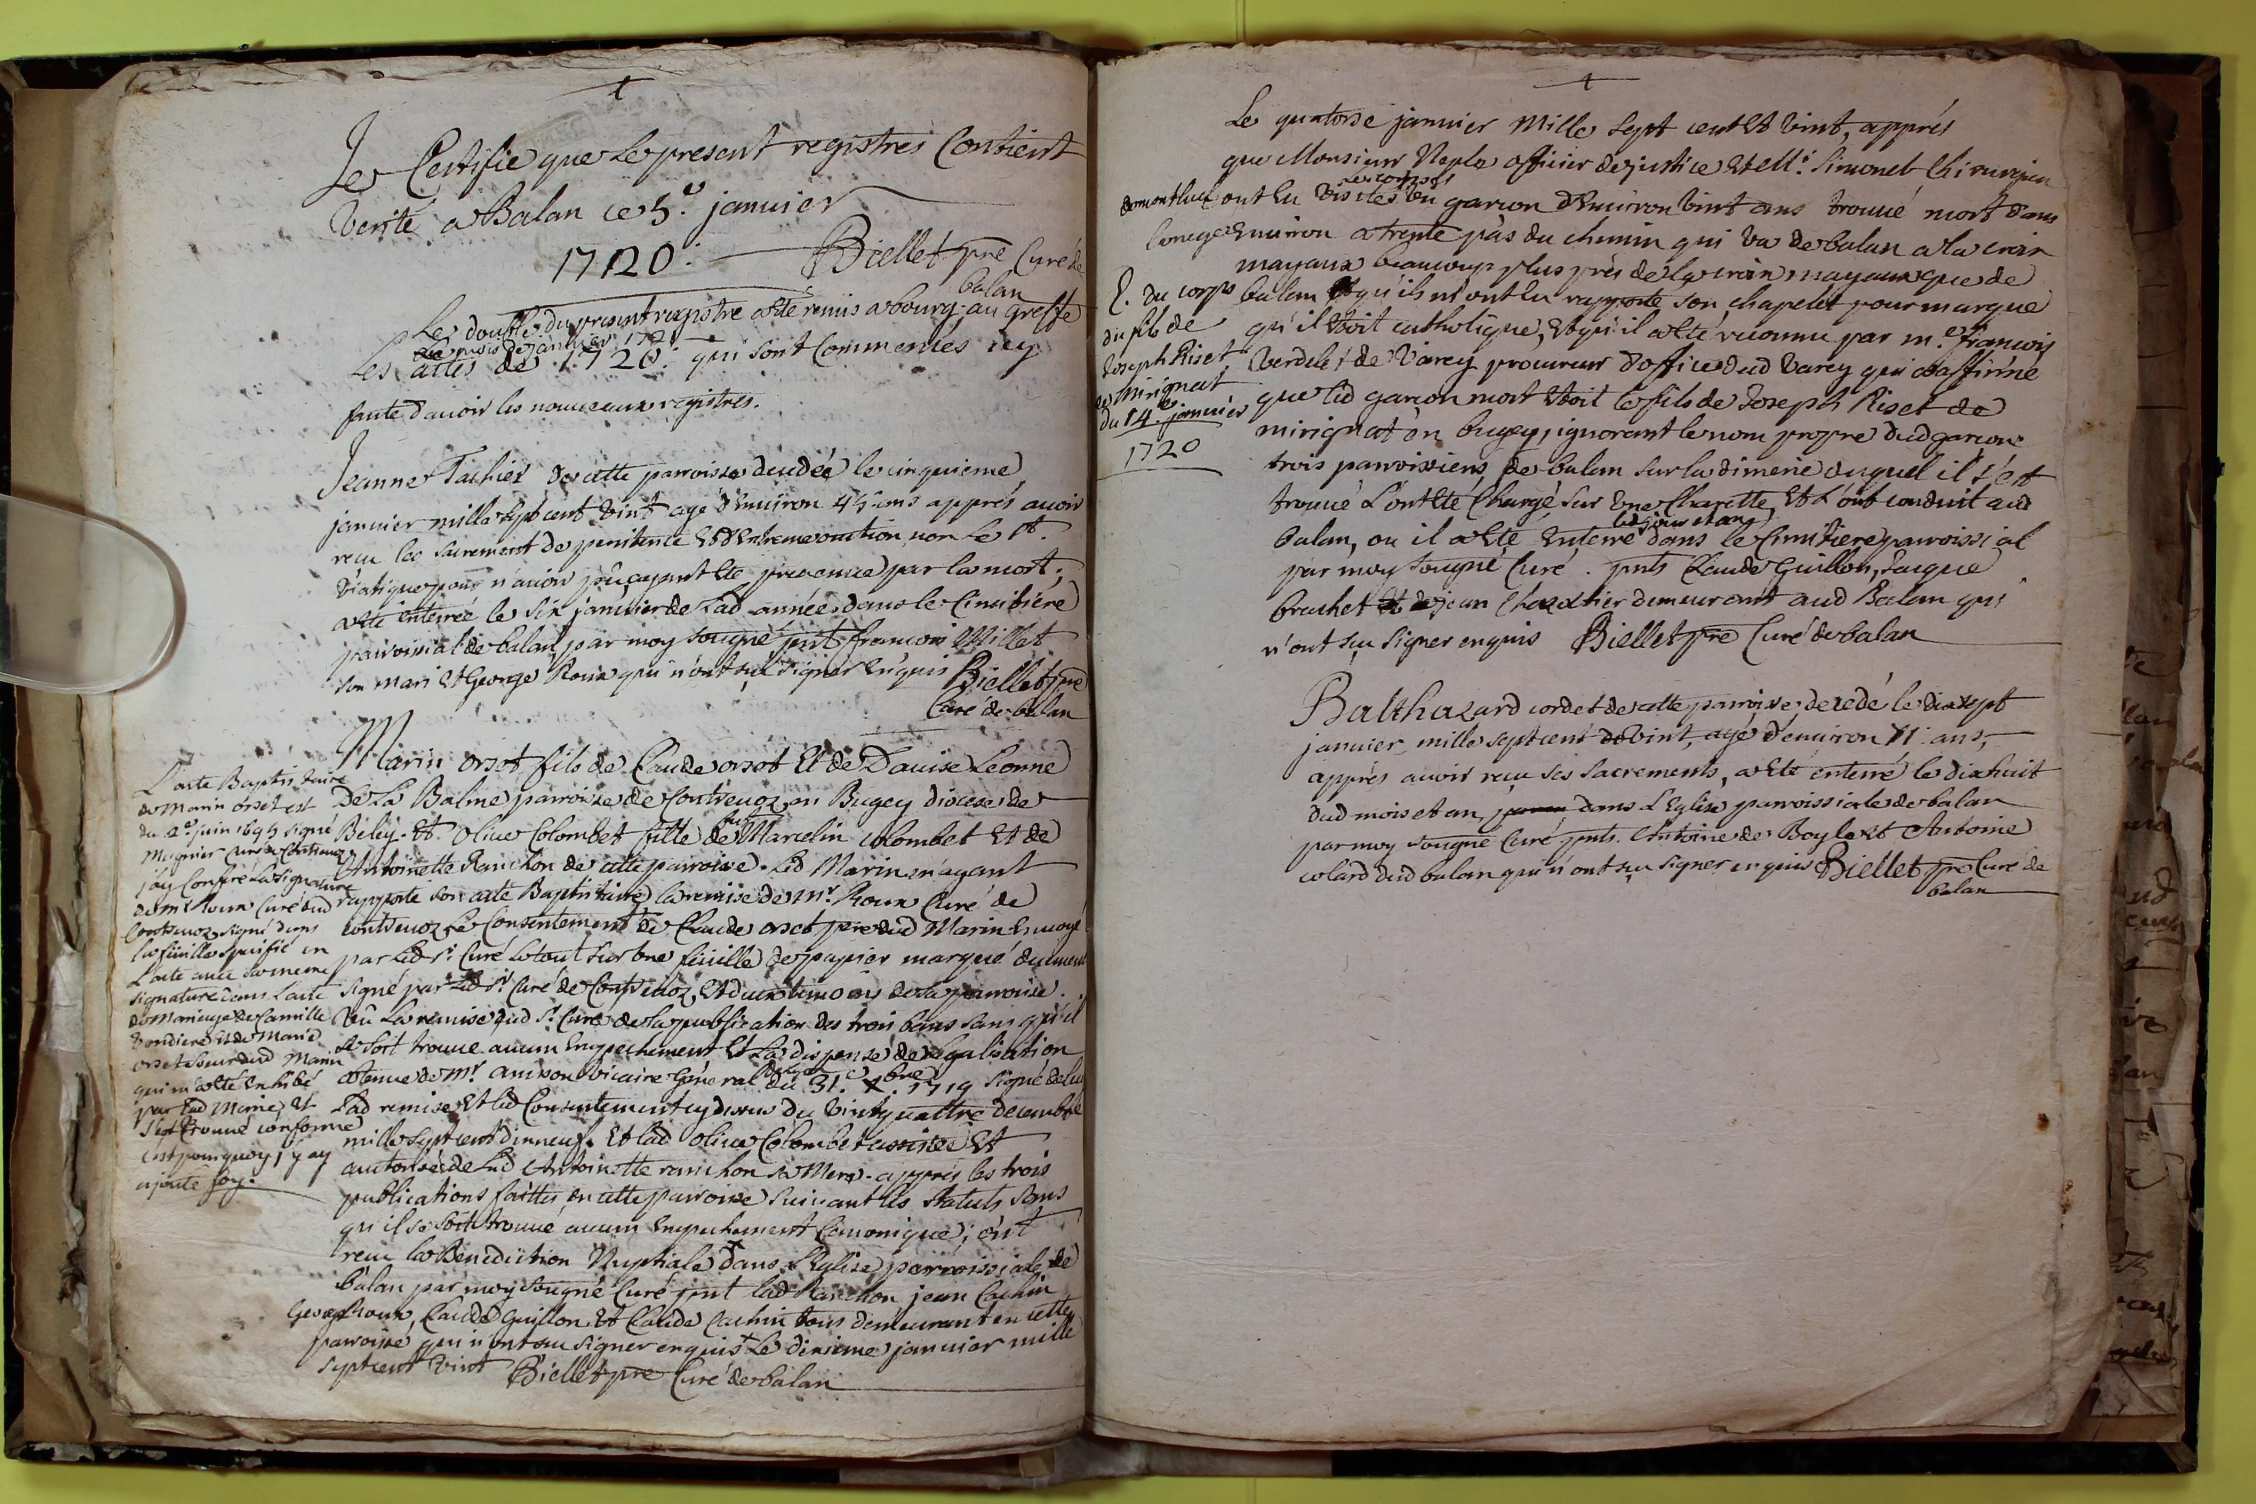 Je Certifie que le present registres Contient
verité a Balan ce 5.e janvier
1720. Biellet pre Curé de
balan
Le double du present registre a eté remis a bourg au greffe
au mois de janvier
Les actes de 1720. qui sont Commencés icy
faute d'avoir les nouveaux registres.
Jeanne de cette parroisse decedée le cinquieme
janvier mille sept cent vint agé d'Environ 45 ans apprés avoir
recu les sacrement de penitence Et d'Extremeonction non le St.
Viatique pour n'avoir pû ayant Eté prevenue par la mort,
a eté enterrée le six janvier de lad année dans le Cimitiere
parroissial de balan par moy sougné pnt francois Millet
son mari Et George Roux qui n'ont sçu signer Enquis Biellet pre
Curé de balan
Marin orset fils de Claude orset Et de Danise Leonne
De La Balme parroisse de Contrevoz en Bugey diocese de
Beley. Et Olive Colombet fille de feu Marcelin Colombet Et de
Antoinette Ranchon de cette parroisse. Led Marin m'ayant
rapporté son acte Baptistaire, la remise de Mr. Roux Curé de
Contrevoz Le Consentement de Claude orset pere dud Marin Envoyé
par led sr. Curé Le tout sur une feüille de papier marqué dument
signé par led sr Curé de Contrevoz, Et deux temoins de sa parroisse.
Vû La remise dud sr. Curé de la publication des trois bans sans qu'il
se soit trouvé aucun Empechement Et La dispense de Legalisation
obtenue de Mr. vicaire General du 31. Xbre 1719 signé de luy
Lad remise Et led Consentement cy dessus du vint quattre decembre
mille sept cent dixneuf. Et lad Olive Colombet assistée Et
authorisée de lad Antoinette ranchon sa Mere. apprés les trois
publications faittes en cette parroisse suivant les statuts sans
qu'il se soit trouvé aucun Empechement Canonique; ont
recu la Benediction Nuptiale dans L'Eglise parroissiale de
balan par moy sougné Curé pnt lad Ranchon jean Cachin
George Roux, Claude Guillon Et Claude Cachin tous demeurant en cette
parroisse qui n'ont su signer enquis Le dixieme janvier mille
sept cent vint Biellet pre Curé de balan
L'acte Baptistaire
de Marin orset est
du 2.e juin 1695 signé
Mugnier Curé de Contrevoz
j'ay Conferé La signature
de mr Roux Curé dud
Contrevoz signé dans
la füille specifié en
L'acte avec sa meme
signature dans l'acte
de Mariage de Camille
et de Marie
orset soeur dud Marin
qui m'a eté Exhibé
par lad Marie, Et
s'est trouvé conforme
c'est pourquoy j'y ay
ajouté foy.
Le quatorse janvier Mille sept cent Et vint, apprés
que Monsieur Neple officier de justice Et Mr. Simonet Chirurgien
de montluel ont Eu visités le corps d'un garcon d'Environ vint ans trouvé mort dans
la neige Environ a trente pas du chemin qui va de balan a la croix
mayaux beaucoup plus prés de la croix mayaux que de
balan Et qu'ils m'ont Eu rapporté son chapelet pour marque
qu'il Etoit catholique, Et qu'il a eté reconnu par m.e francois
Verdel de Varey procureur d'office dud Varey qui a affirmé
que led garcon mort Etoit le fils de Joseph Riset de
mirignat en bugey, ignorant le nom propre dud garcon
trois parroissiens de balan sur la dimerie duquel il s'est
trouvé L'ont Eté Chargé sur une Charette, Et L'ont conduit aud
balan, ou il a eté Enterré led jour et an dans le Cimitiere parroissial
par moy sougné Curé. pnts Claude Guillon, Jacque
brachet jean demeurant aud Balan qui
n'ont sçu signer enquis Biellet pre Curé de balan
E. du corps
du fils de
Joseph Riset
de Mirignat
du 14.e janvier
1720
Balthazard cordet de cette parroisse, decedé le dixsept
janvier mille sept cent vint, agé d'environ 11 ans,
apprés avoir recu ses sacrements, a eté enterré le dixhuit
dud mois et an dans L'Eglise parroissiale de balan
par moy sougné Curé pnts. Antoine de Boyle Et Antoine
colard dud balan qui n'ont sçu signer enquis Biellet pre Curé de
balan